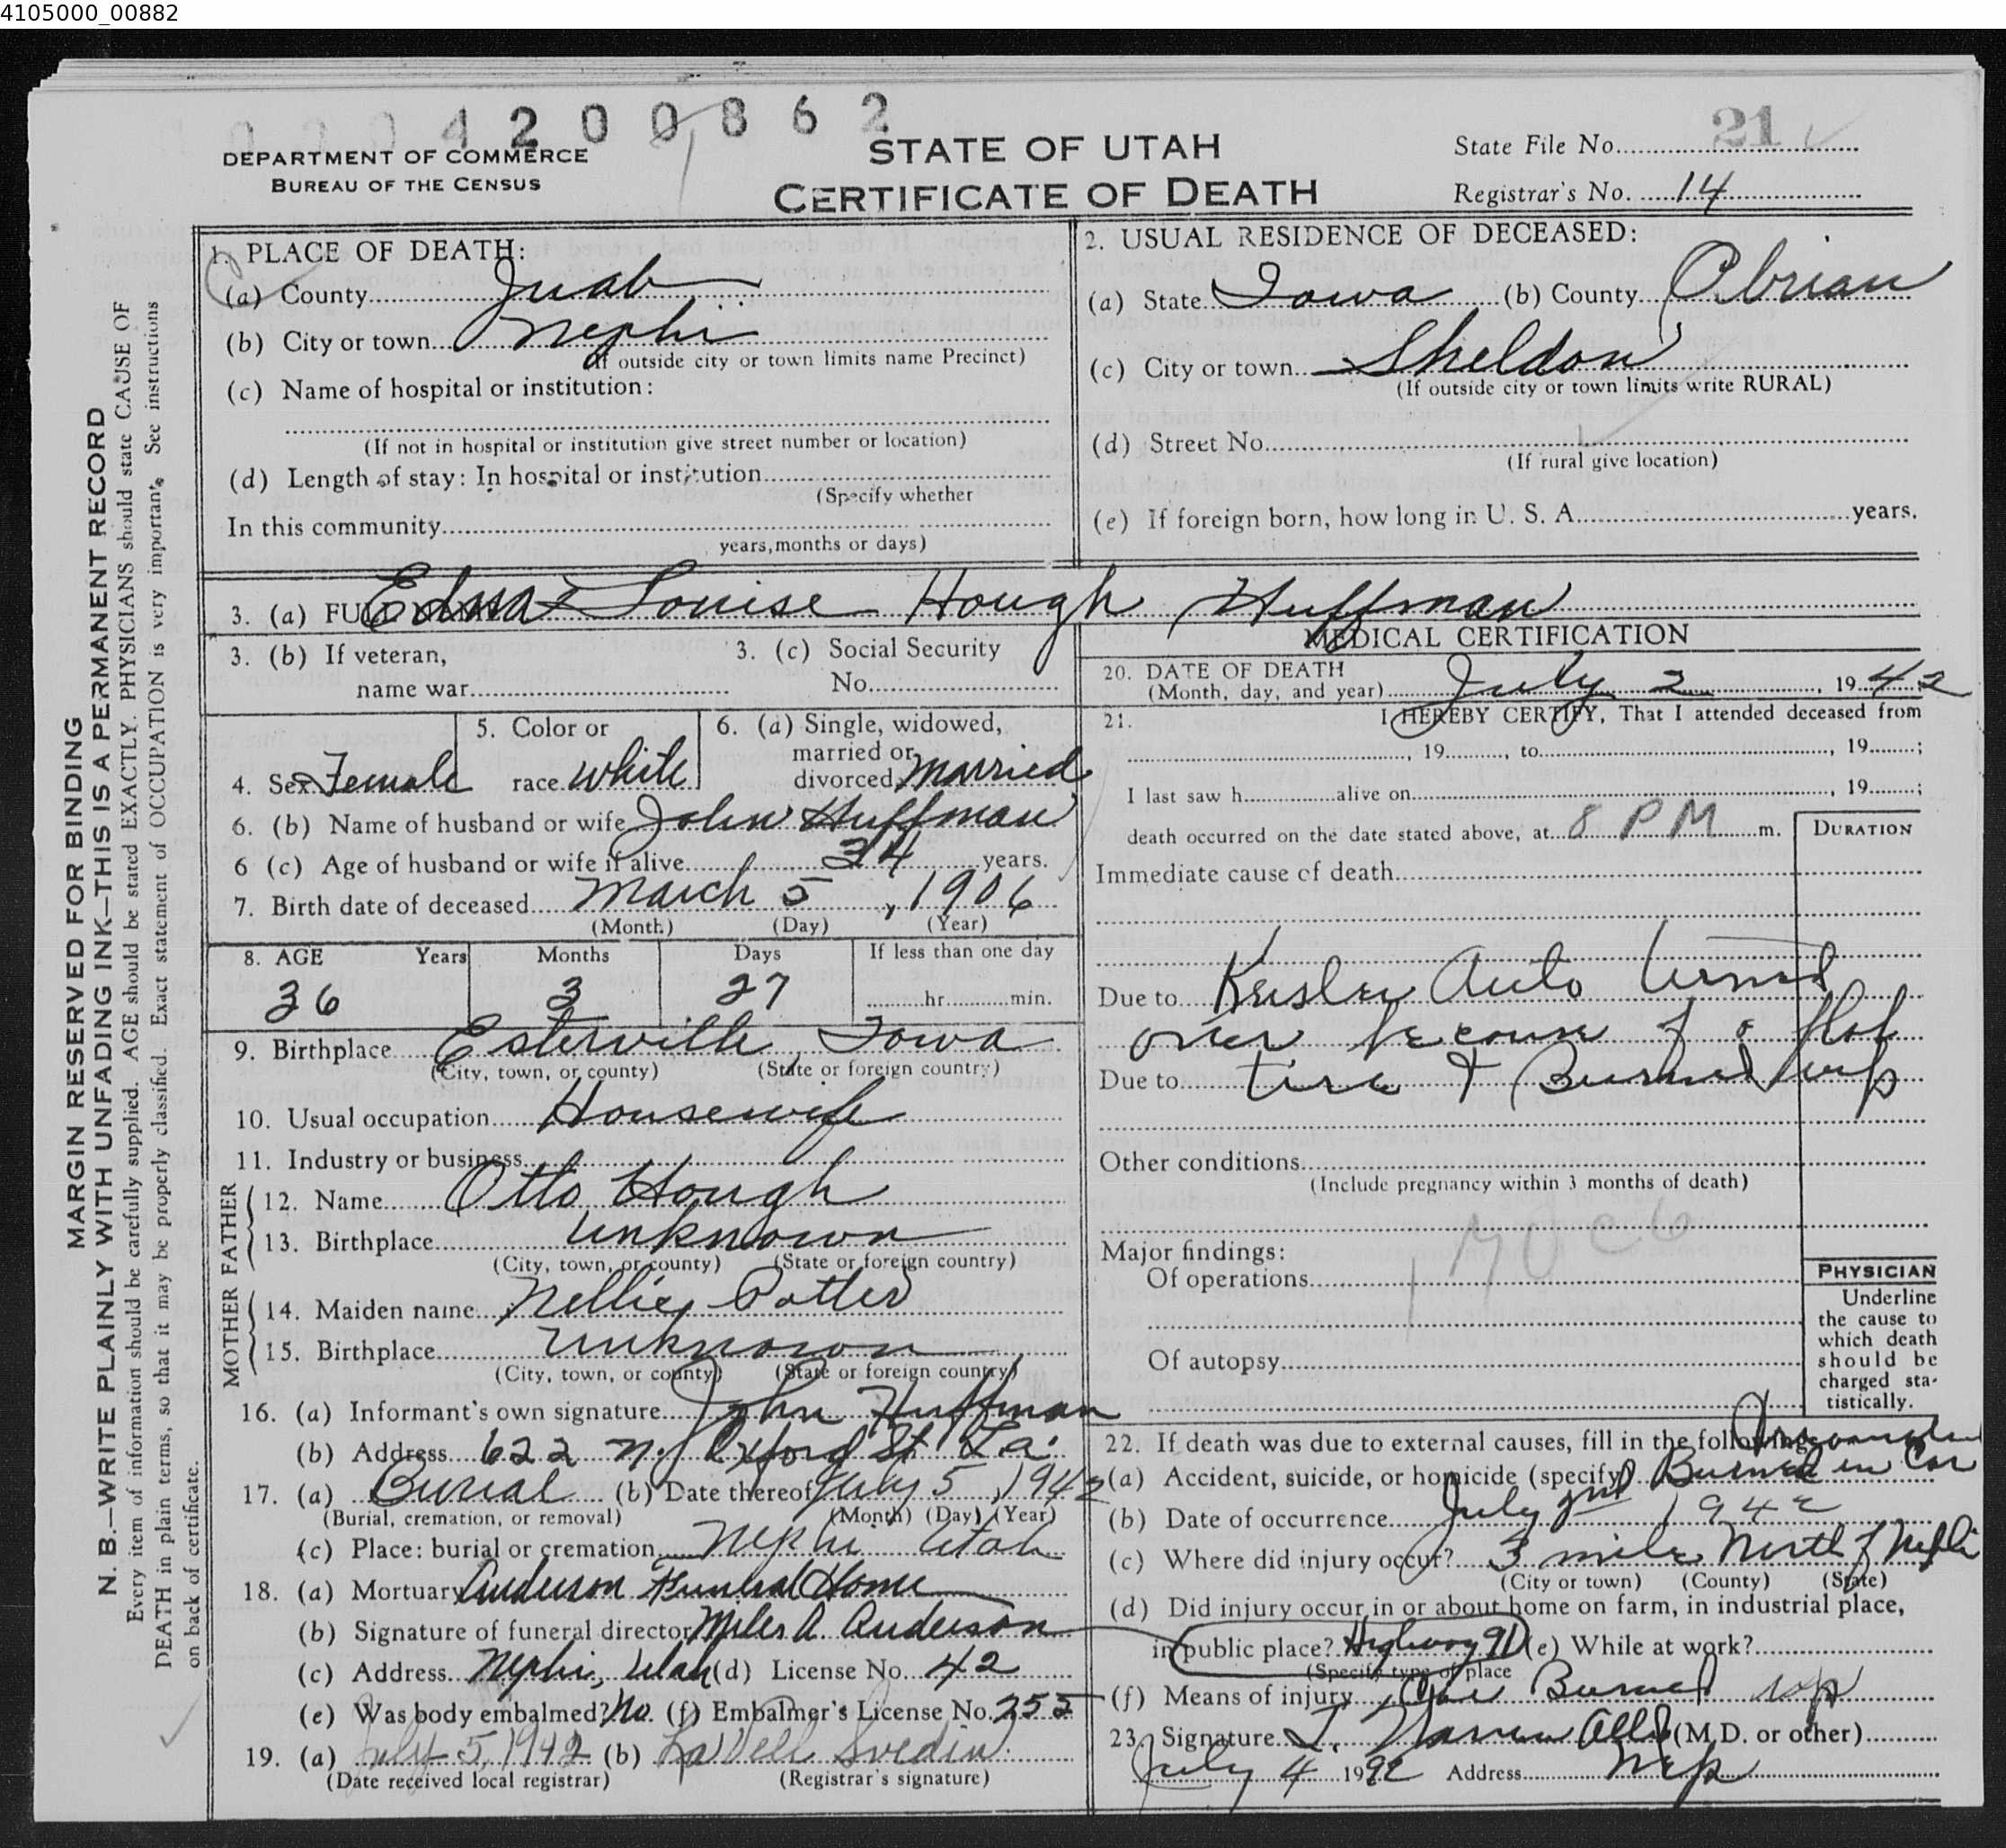 4105000_00882
4 2 0 0 8 6 2
DEPARTMENT OF COMMERCE
BUREAU OF THE CENSUS
STATE OF UTAH
CERTIFICATE OF DEATH
State File No. 21
Registrar's No. 14
MARGIN RESERVED FOR BINDING
N. B.—WRITE PLAINLY WITH UNFADING INK—THIS IS A PERMANENT RECORD
Every item of information should be carefully supplied. AGE should be stated EXACTLY. PHYSICIANS should state CAUSE OF
DEATH in plain terms, so that it may be properly classified. Exact statement of OCCUPATION is very important. See instructions
on back of certificate.
1. PLACE OF DEATH:
(a) County Juab
(b) City or town Nephi
(If outside city or town limits name Precinct)
(c) Name of hospital or institution:
(If not in hospital or institution give street number or location)
(d) Length of stay: In hospital or institution
(Specify whether
In this community
years, months or days)
2. USUAL RESIDENCE OF DECEASED:
(a) State Iowa (b) County O.brian
(c) City or town Sheldon
(If outside city or town limits write RURAL)
(d) Street No.
(If rural give location)
(e) If foreign born, how long in U. S. A. years.
3. (a) FULL NAME Edna Louise Hough Huffman
3. (b) If veteran,
name war
3. (c) Social Security
No.
4. Sex Female
5. Color or
race white
6. (a) Single, widowed,
married or
divorced Married
6. (b) Name of husband or wife John Huffman
6 (c) Age of husband or wife if alive 34 years.
7. Birth date of deceased March 5, 1906
(Month) (Day) (Year)
8. AGE Years Months Days If less than one day
36 3 27 hr. min.
9. Birthplace Esterville, Iowa
(City, town, or county) (State or foreign country)
10. Usual occupation Housewife
11. Industry or business
FATHER
12. Name Otto Hough
13. Birthplace Unknown
(City, town, or county) (State or foreign country)
MOTHER
14. Maiden name Nellie Potter
15. Birthplace Unknown
(City, town, or county) (State or foreign country)
16. (a) Informant's own signature John Huffman
(b) Address 622 N. Oxford St. La.
17. (a) Burial (b) Date thereof July 5, 1942
(Burial, cremation, or removal) (Month) (Day) (Year)
(c) Place: burial or cremation Nephi Utah
18. (a) Mortuary Anderson Funeral Home
(b) Signature of funeral director Miles A. Anderson
(c) Address Nephi, Utah (d) License No. 42
(e) Was body embalmed? No. (f) Embalmer's License No. 255
19. (a) July 5, 1942 (b) LaVell Svedin
(Date received local registrar) (Registrar's signature)
MEDICAL CERTIFICATION
20. DATE OF DEATH
(Month, day, and year) July 2, 1942
21. I HEREBY CERTIFY, That I attended deceased from
, 19 , to , 19 ;
I last saw h alive on , 19 ;
death occurred on the date stated above, at 8 PM m.
DURATION
Immediate cause of death
Due to Auto turned
over because of a flat
Due to tire & Burned up
Other conditions
(Include pregnancy within 3 months of death)
Major findings:
Of operations
Of autopsy
PHYSICIAN
Underline
the cause to
which death
should be
charged sta-
tistically.
22. If death was due to external causes, fill in the following:
(a) Accident, suicide, or homicide (specify) Burned in Car
(b) Date of occurrence July 2nd 1942
(c) Where did injury occur? 3 miles North of Nephi
(City or town) (County) (State)
(d) Did injury occur in or about home on farm, in industrial place,
in public place? Highway 91 (e) While at work?
(Specify type of place
(f) Means of injury Burned up
23. Signature (M.D. or other)
July 4 1942 Address Nep